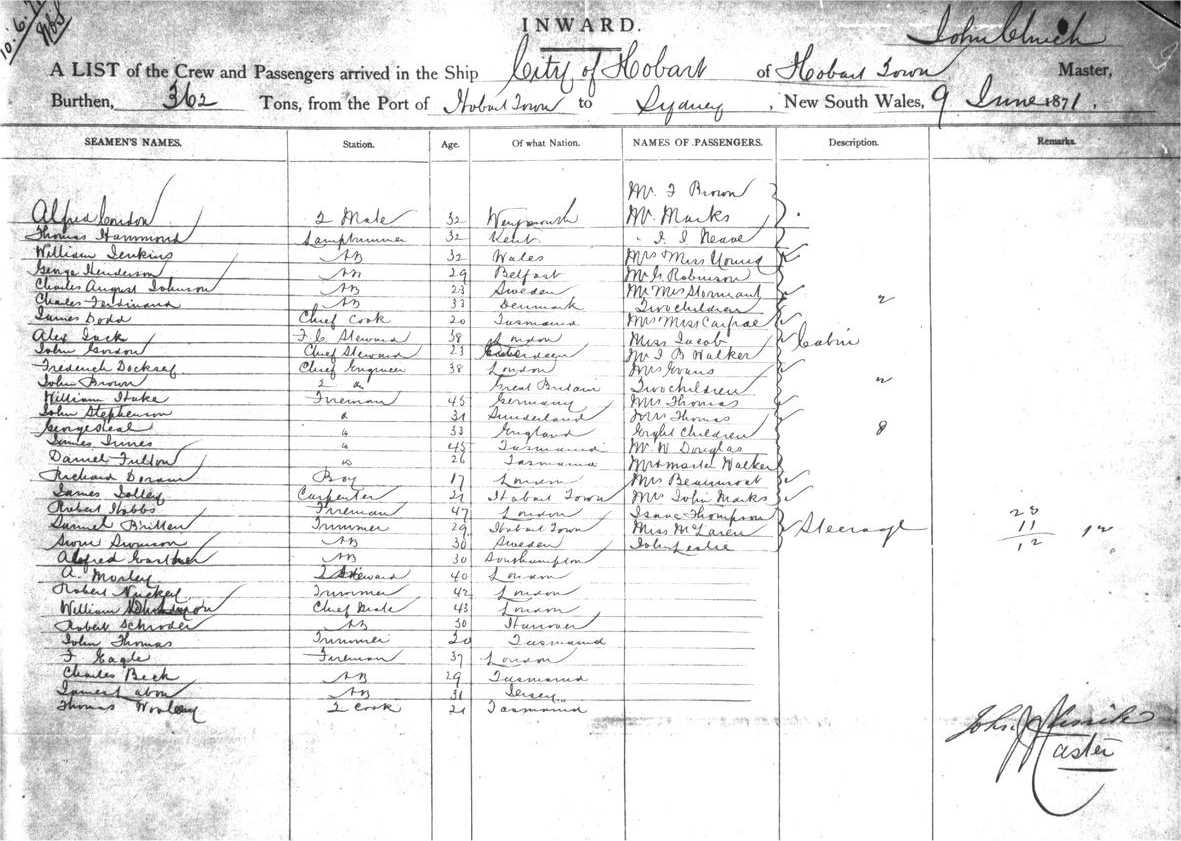 10.6.71
INWARD.
John Clinch
A LIST of the Crew and Passengers arrived in the Ship City of Hobart of Hobart Town Master,
Burthen, 362 Tons, from the Port of Hobart Town to Sydney, New South Wales, 9 June 1871.
SEAMEN'S NAMES. Station. Age. Of what Nation. NAMES OF PASSENGERS. Description. Remarks.
Mr F Brown
Alfred London 2 Mate 32 Weymouth Mr. Marks
Thomas Hammond Lamptrimmer 32 Kent " J. I Neave
William Jenkins AB 32 Wales Mrs & Miss Young
George Henderson AB 29 Belfast Mr G Robinson
Charles August Johnson AB 23 Sweden Mr Mrs Stormant
Charles Ferdinand AB 33 Denmark Two children 2
James Dodd Chief Cook 20 Tasmania Mrs Miss Carfrae
Alex Jack F. C Steward 38 London Miss Jacob Cabin
John Gordon Chief Steward 23 Aberdeen Mr J B Walker
Frederick Docksey Chief Engineer 38 London Mrs Evans
John Brown 2 " Great Britain Two children 2
William Hake Fireman 45 Germany Mrs Thomas
John Stephenson " 31 Sunderland Thomas
George Neal " 33 England Eight Children 8
James Innes " 45 Tasmania Mr W Douglas
Daniel Fulton " 26 Tasmania Mr & Master Walker
Richard Doram Boy 17 London Mrs Beaumont
James Jolley Carpenter 21 Hobart Town Mrs John Marks
Robert Hobbs Fireman 47 London Isaac Thompson 23
Samuel Britten Trimmer 29 Hobart Town Miss McLaren Steerage 11 12
Swen Swanson AB 30 Sweden John Leslie 12
Alfred Gardner AB 30 Southampton
A. Morley 2 Steward 40 London
Robert Nuckey Trimmer 42 London
William Chief Mate 43 London
Robert Schroder AB 30 Hanover
John Thomas Trimmer 20 Tasmania
F Eagle Fireman 37 London
Charles Beck AB 29 Tasmania
James Labon AB 31 Jersey
Thomas Wooley 2 Cook 21 Tasmania
John Clinch
Master